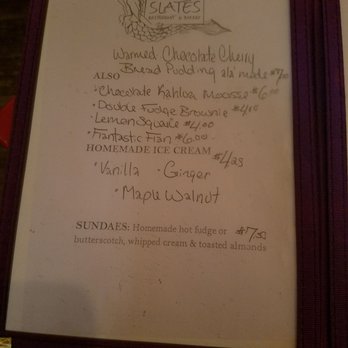 SLATES
RESTAURANT & BAKERY
Warmed Chocolate Cherry
Bread Pudding ala' mode $7.00
ALSO
• Chocolate Kahlua Moosse $6.00
• Double Fudge Brownie $4.15
• Lemon Square $4.00
• Fantastic Flan $6.00
HOMEMADE ICE CREAM $4.25
• Vanilla • Ginger
• Maple Walnut
SUNDAES: Homemade hot fudge or $7.50
butterscotch, whipped cream & toasted almonds